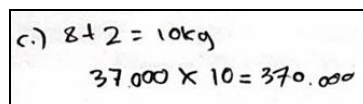 c.) 8+2 = 10kg
37.000 x 10 = 370.000